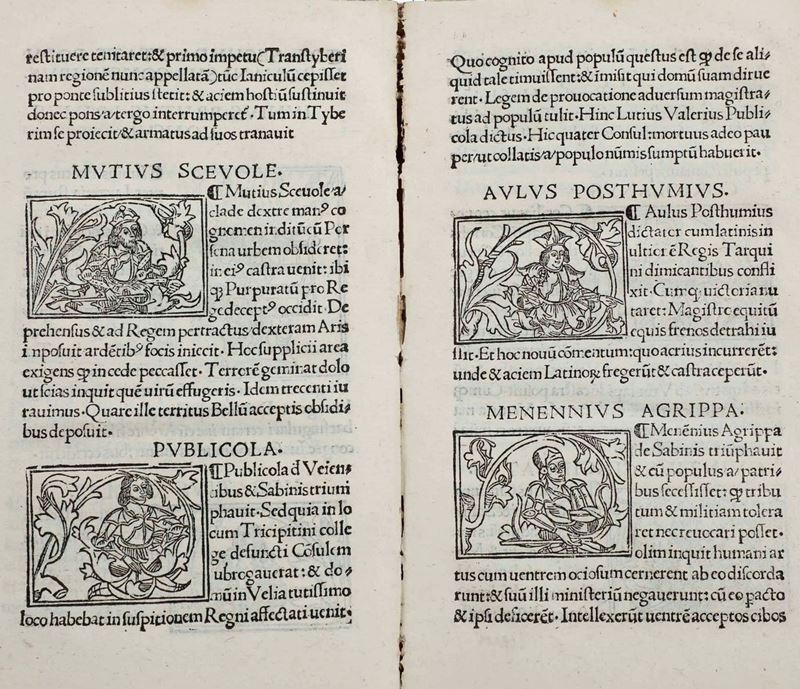 restituere temtaret:& primo impetu(Transtyberi
nam regionē nunc appellatā)tūc Ianiculū cepisset
pro ponte sublitius stetit:& aciem hostiū sustinuit
donec pons/a/tergo interrumperet᷒· Tum in Tybe
rim se proiecit/& armatus ad suos tranauit
MVTIVS SCEVOLE·
¶ Mutius Sceuole/a/
clade dextre manꝰ co
gnemen inditū cū Per
sena urbem obsideret:
in eiꝰ castra uenit: ibi
ꝙ Purpuratū pro Re
ge deceptꝰ occidit· De
prehensus & ad Regem pertractus/dexteram Aris
inposuit ardētibꝰ focis iniecit· Hoc supplicii area
exigens ꝙ in cede peccasset· Terrorē geminat dolo
ut scias inquit quē uirū effugeris· Idem trecenti iu
rauimus· Quare ille territus Bellū acceptis obsidi/
bus deposuit·
PVBLICOLA·
¶ Publicola d Veien/
tibus & Sabinis triuni
phauit· Sed quia in lo
cum Tricipitini colle
ge defuncti Cōsulem
ubrogauerat:& do/
mū in Velia tutissimo
loco habebat in suspitionem Regni affectati uenit·
Quo cognito apud populū questus est ꝙ de se ali/
quid tale timuissent:& imisit qui domū suam dirue
rent· Legem de prouocatione aduersum magistra/
tus ad populū tulit· Hinc Lutius Valerius Publi/
cola dictus· Hic quater Consul:mortuus adeo pau
per/ut collatis/a/populo nūmis sumptū habuerit·
AVLVS POSTHVMIVS·
¶ Aulus Posthumius
dictater cum latinis in
ultier ē Regis Tarqui
ni dimicantibus confli
xit· Cumꝙ uictoria nu
taret: Magistro equitū
equis frenos detrahi iu
ssit· Et hoc nouū cōmentum:quo acrius incurrerēt:
unde & aciem Latinoꝝ fregerūt & castra ceperūt·
MENENNIVS AGRIPPA·
¶ Menēnius Agrippa
de Sabinis triūphauit
& cū populus/a/patri/
bus secessisset: ꝙ tribu
tum & militiam tolera
ret nec reuocari posset·
olim inquit humani ar
tus cum uentrem ociosum cernerent ab eo discorda
runt:& suū illi ministeriū negauerunt: cū eo pacto
& ipsi deficerēt· Intellexerūt uentrē acceptos cibos